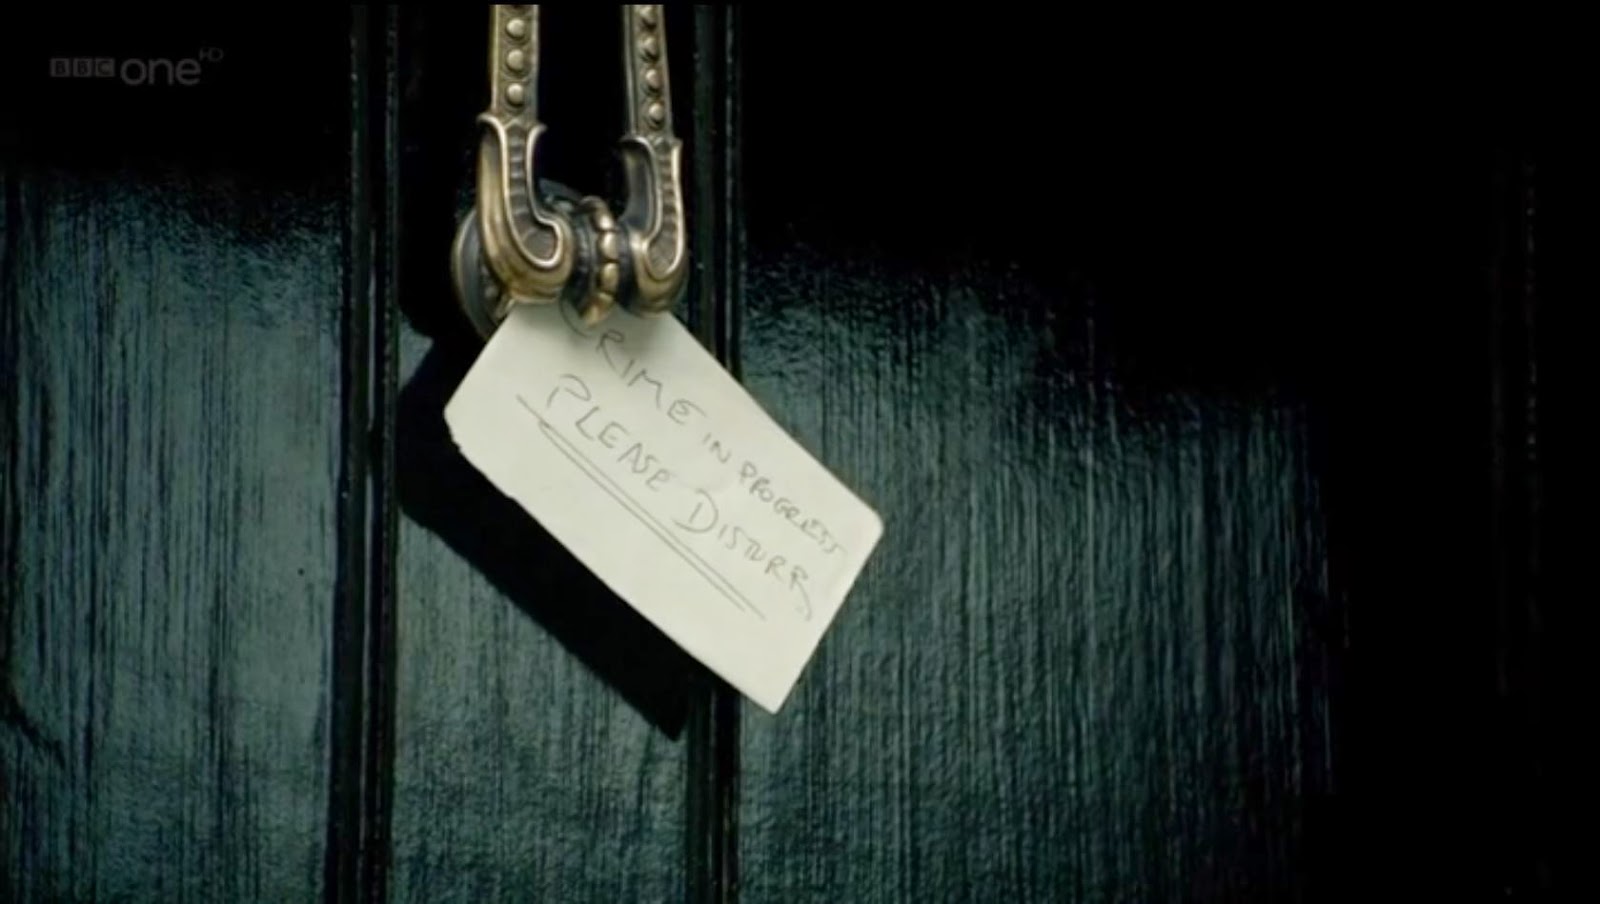 BBC one HD
CRIME IN PROGRESS
PLEASE DISTURB